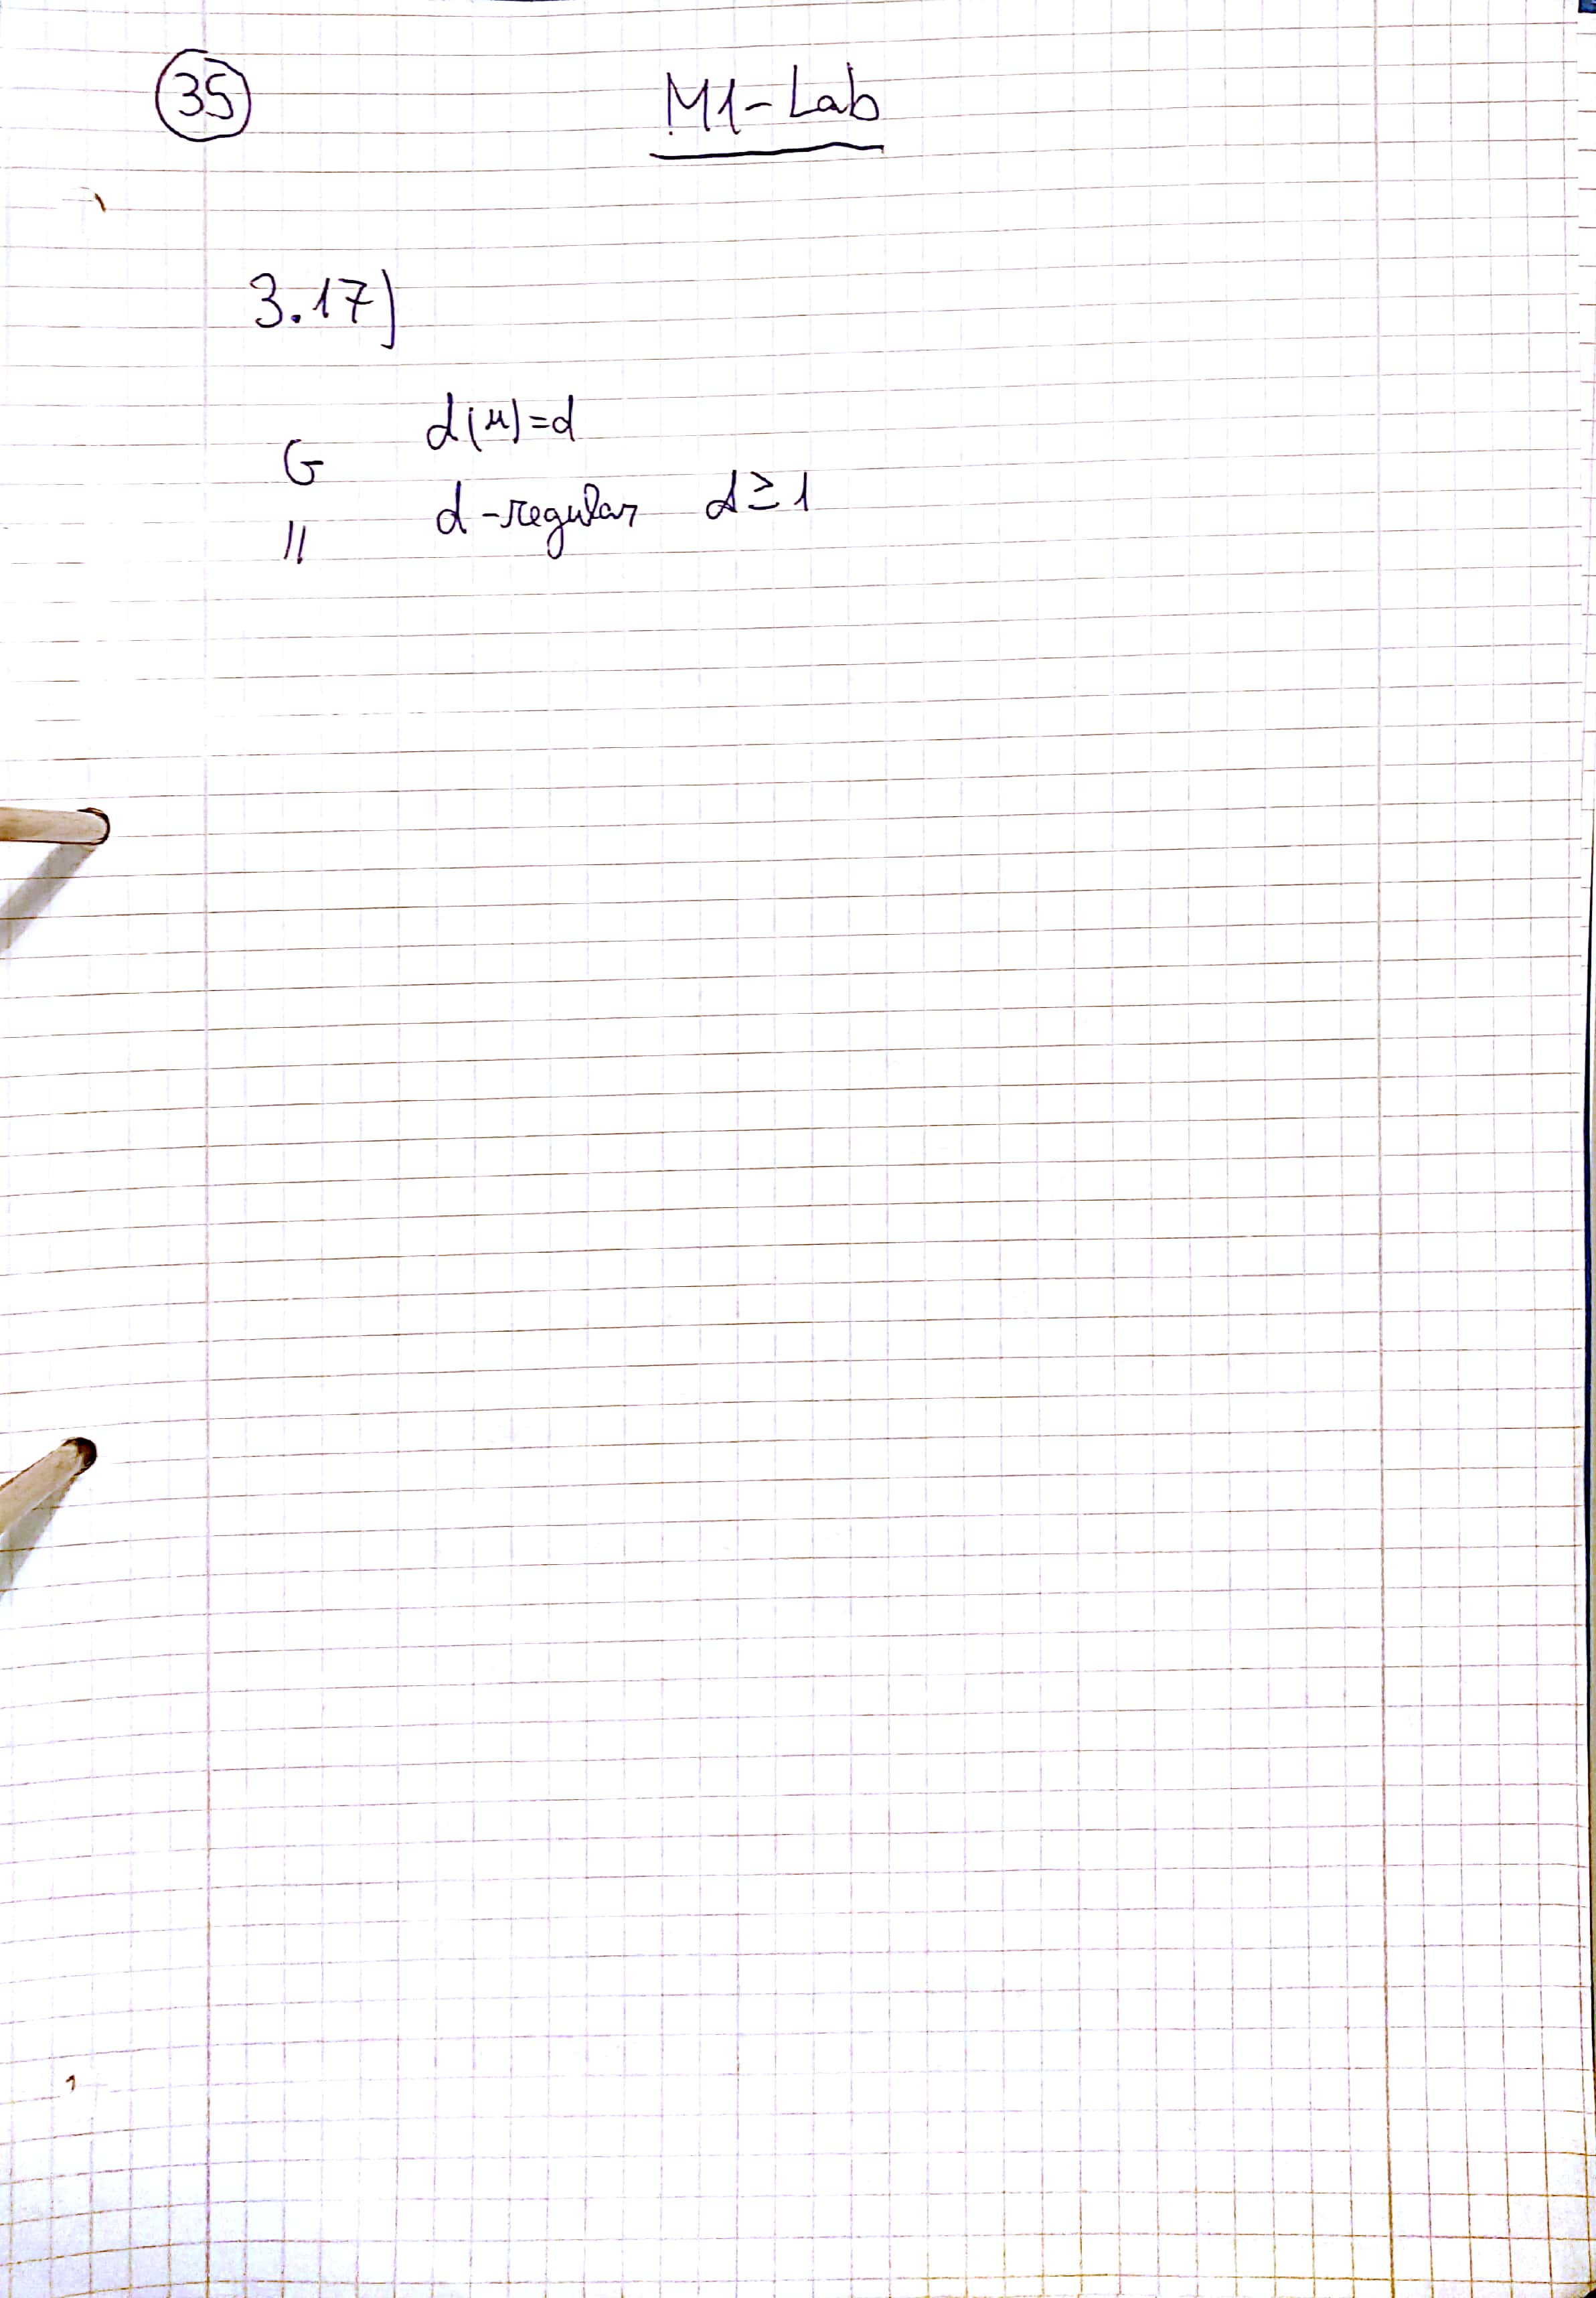 35 M1-Lab
3.17)
d(u)=d
G
d-regular d≥1
||